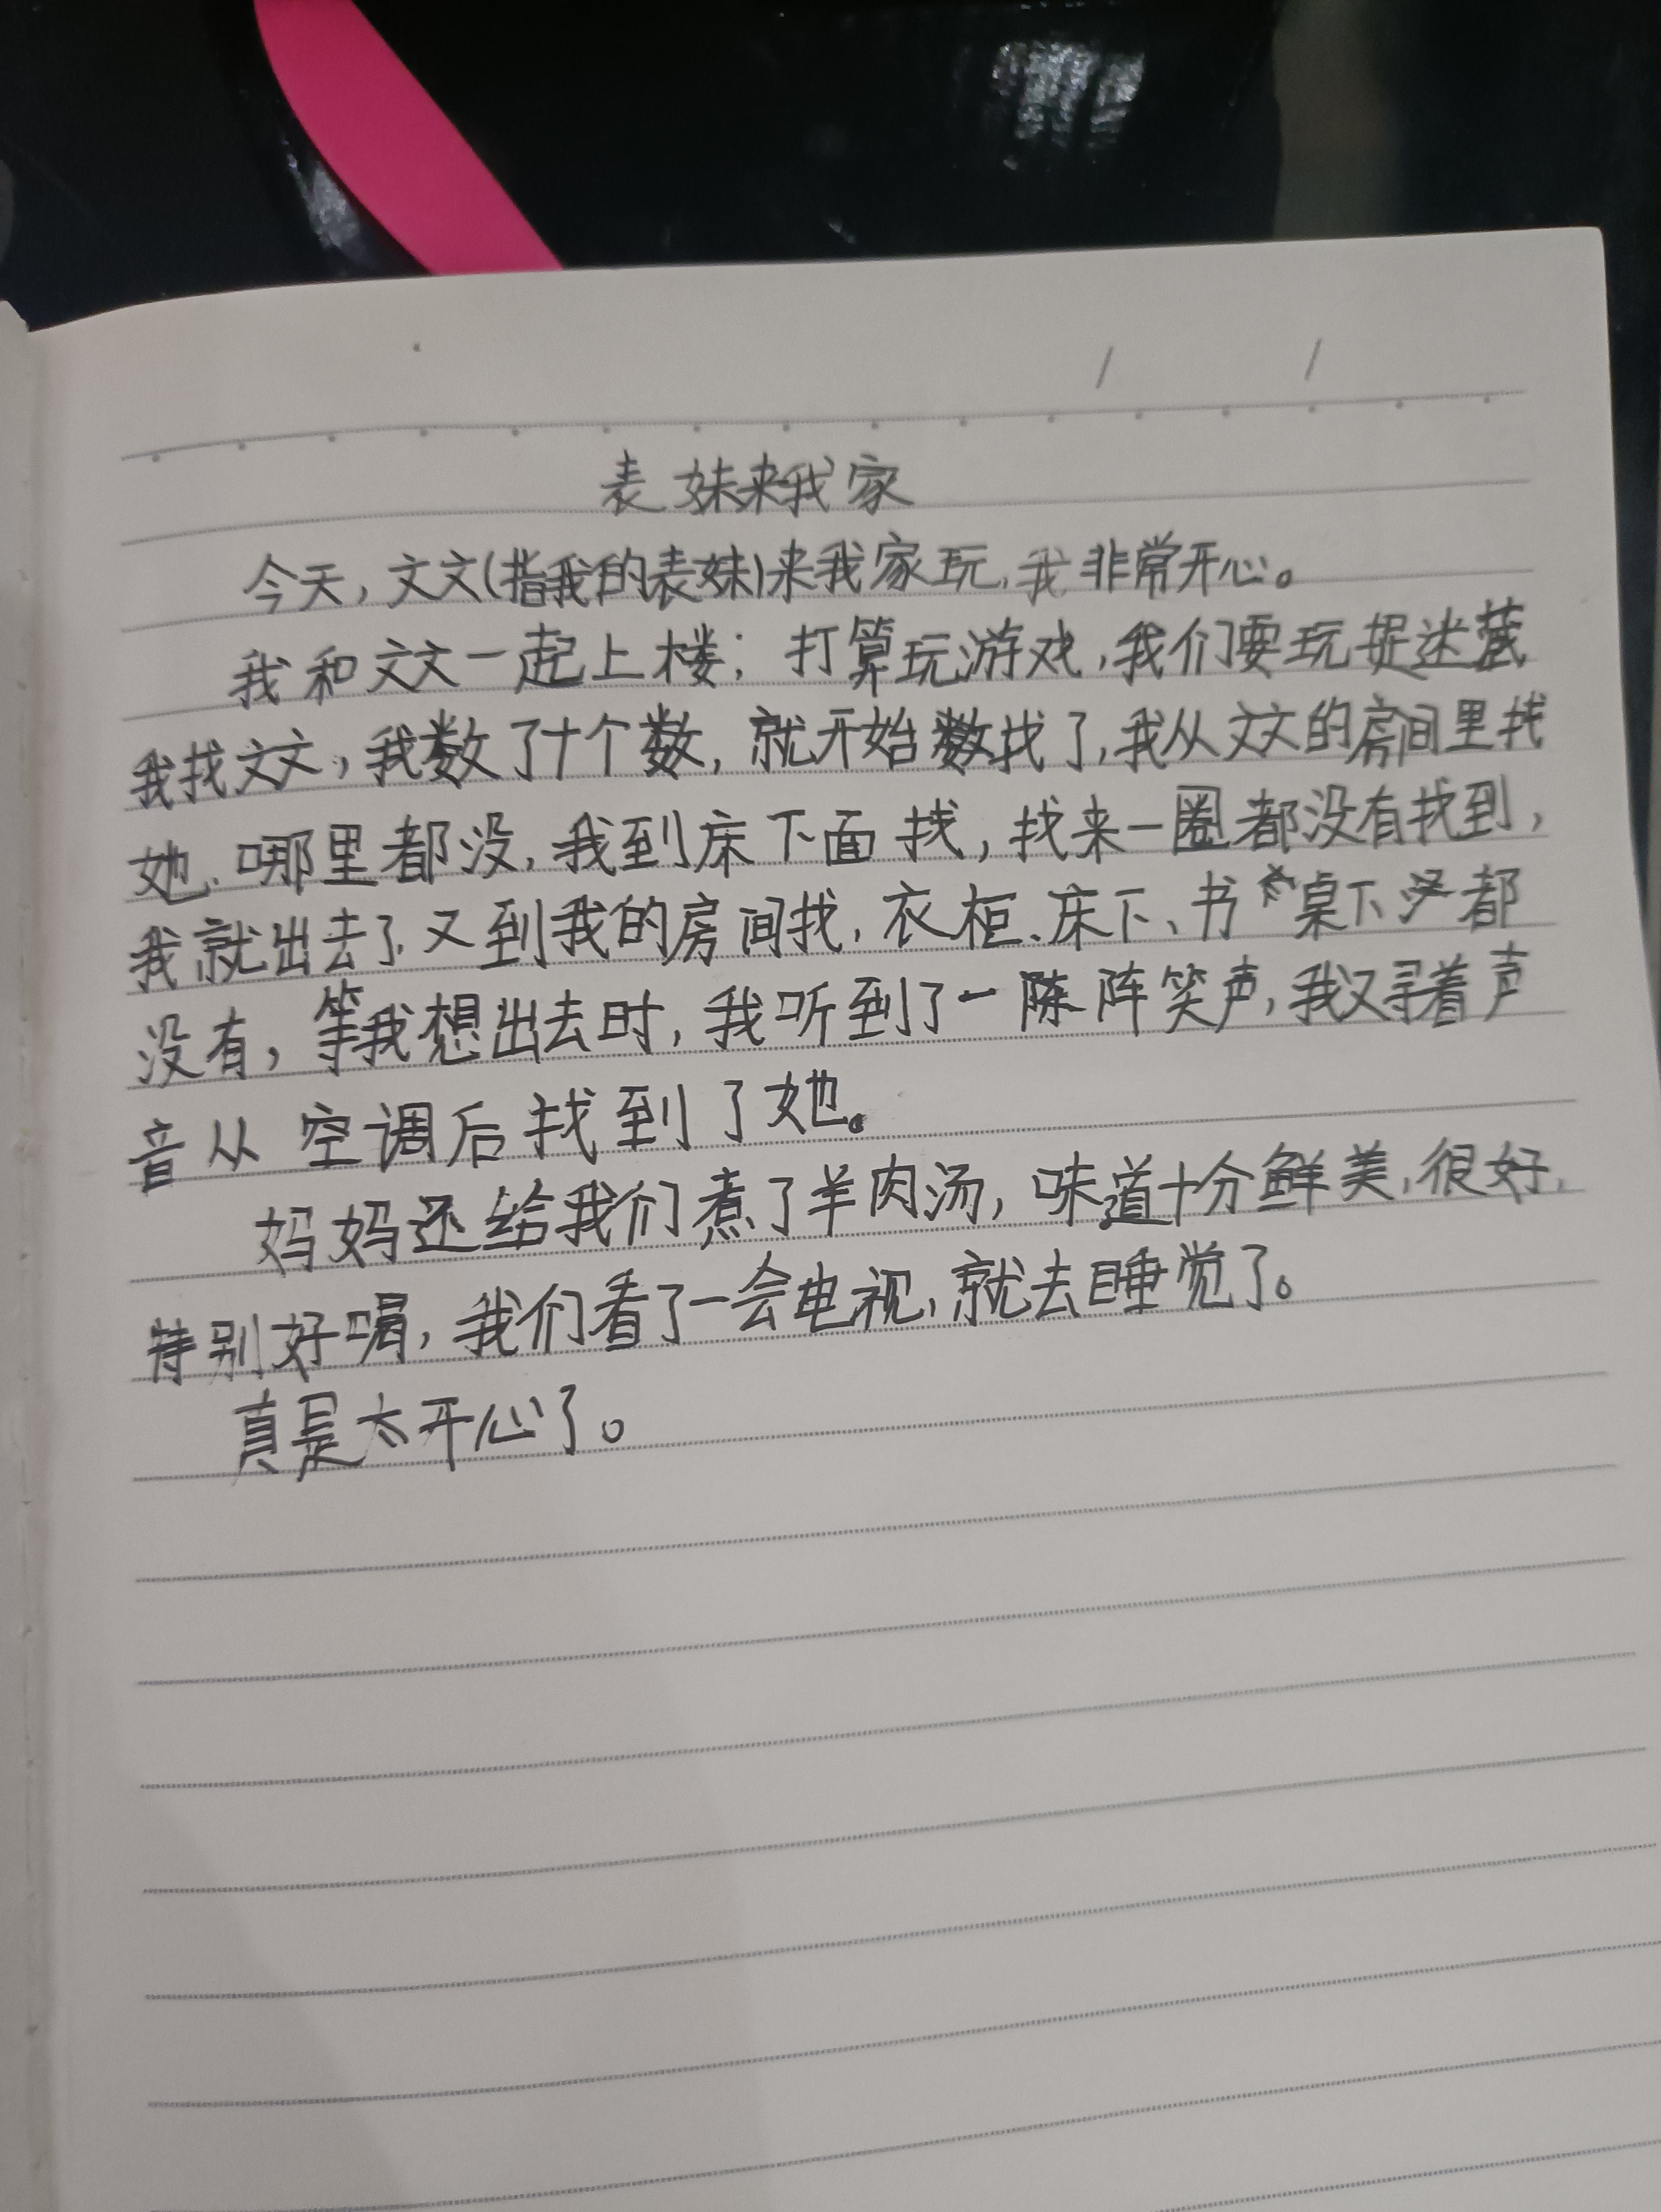 表妹来我家
今天,文文(指我的表妹)来我家玩,我非常开心。
我和文文一起上楼;打算玩游戏,我们要玩捉迷藏
我找文文,我数了十个数,就开始数找了,我从文文的房间里找
她、哪里都没,我到床下面找,找来一圈都没有找到,
我就出去了,又到我的房间找,衣柜、床下、书桌下都
没有,等我想出去时,我听到了一阵阵笑声,我又寻着声
音从空调后找到了她。
妈妈还给我们煮了羊肉汤,味道十分鲜美,很好,
特别好喝,我们看了一会电视,就去睡觉了。
真是太开心了。